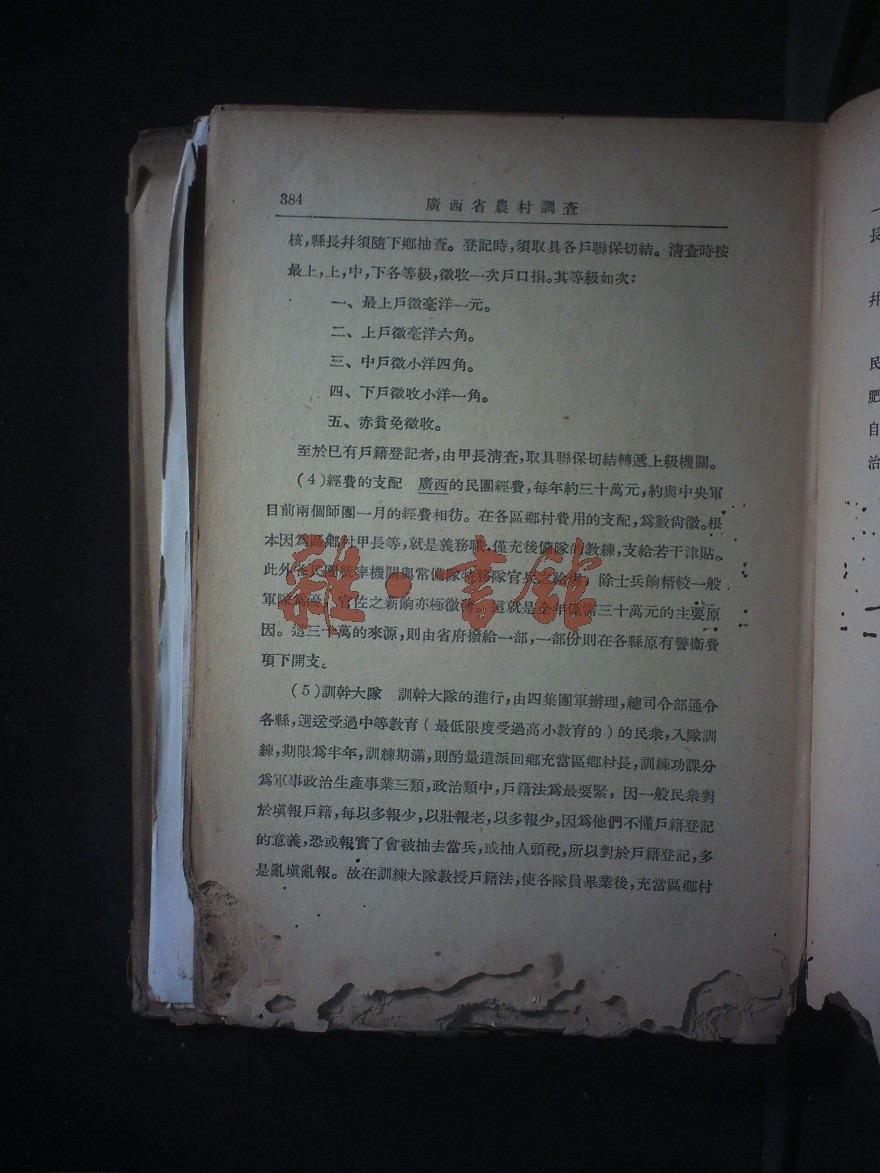 384
廣西省農村調查
核,縣長幷須隨下鄉抽查。登記時,須取具各戶聯保切結。淸查時按
最上,上,中,下各等級,徵收一次戶口捐。其等級如次:
一、最上戶徵毫洋一元。
二、上戶徵毫洋六角。
三、中戶徵小洋四角。
四、下戶徵收小洋一角。
五、赤貧免徵收。
至於已有戶籍登記者,由甲長淸查,取具聯保切結轉遞上級機關。
(4)經費的支配 廣西的民團經費,每年約三十萬元,約與中央軍
目前兩個師團一月的經費相彷。在各區鄉村費用的支配,爲數尙微。根
本因爲區鄉村甲長等,就是義務職,僅充後備隊的教練,支給若干津貼。
此外各民團統率機關與常備隊特務隊官兵之給與,除士兵餉糈較一般
軍隊爲優,官佐之薪餉亦極微薄,這就是全年僅需三十萬元的主要原
因。這三十萬的來源,則由省府撥給一部,一部份則在各縣原有警衞費
項下開支。
(5)訓幹大隊 訓幹大隊的進行,由四集團軍辦理,總司令部通令
各縣,選送受過中等教育(最低限度受過高小教育的)的民衆,入隊訓
練,期限爲半年,訓練期滿,則酌量遣派回鄉充當區鄉村長,訓練功課分
爲軍事政治生產事業三類,政治類中,戶籍法爲最要緊,因一般民衆對
於塡報戶籍,每以多報少,以壯報老,以多報少,因爲他們不懂戶籍登記
的意義,恐或報實了會被抽去當兵,或抽人頭稅,所以對於戶籍登記,多
是亂塡亂報。故在訓練大隊教授戶籍法,使各隊員畢業後,充當區鄉村
雜·書館
長
幷
民
肥
自
治